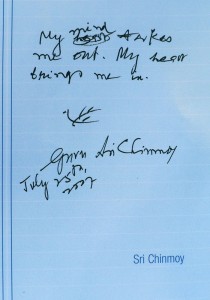 My mind takes
me out. My heart
brings me in.
Guru Sri Chinmoy
July 25th,
2007
Sri Chinmoy